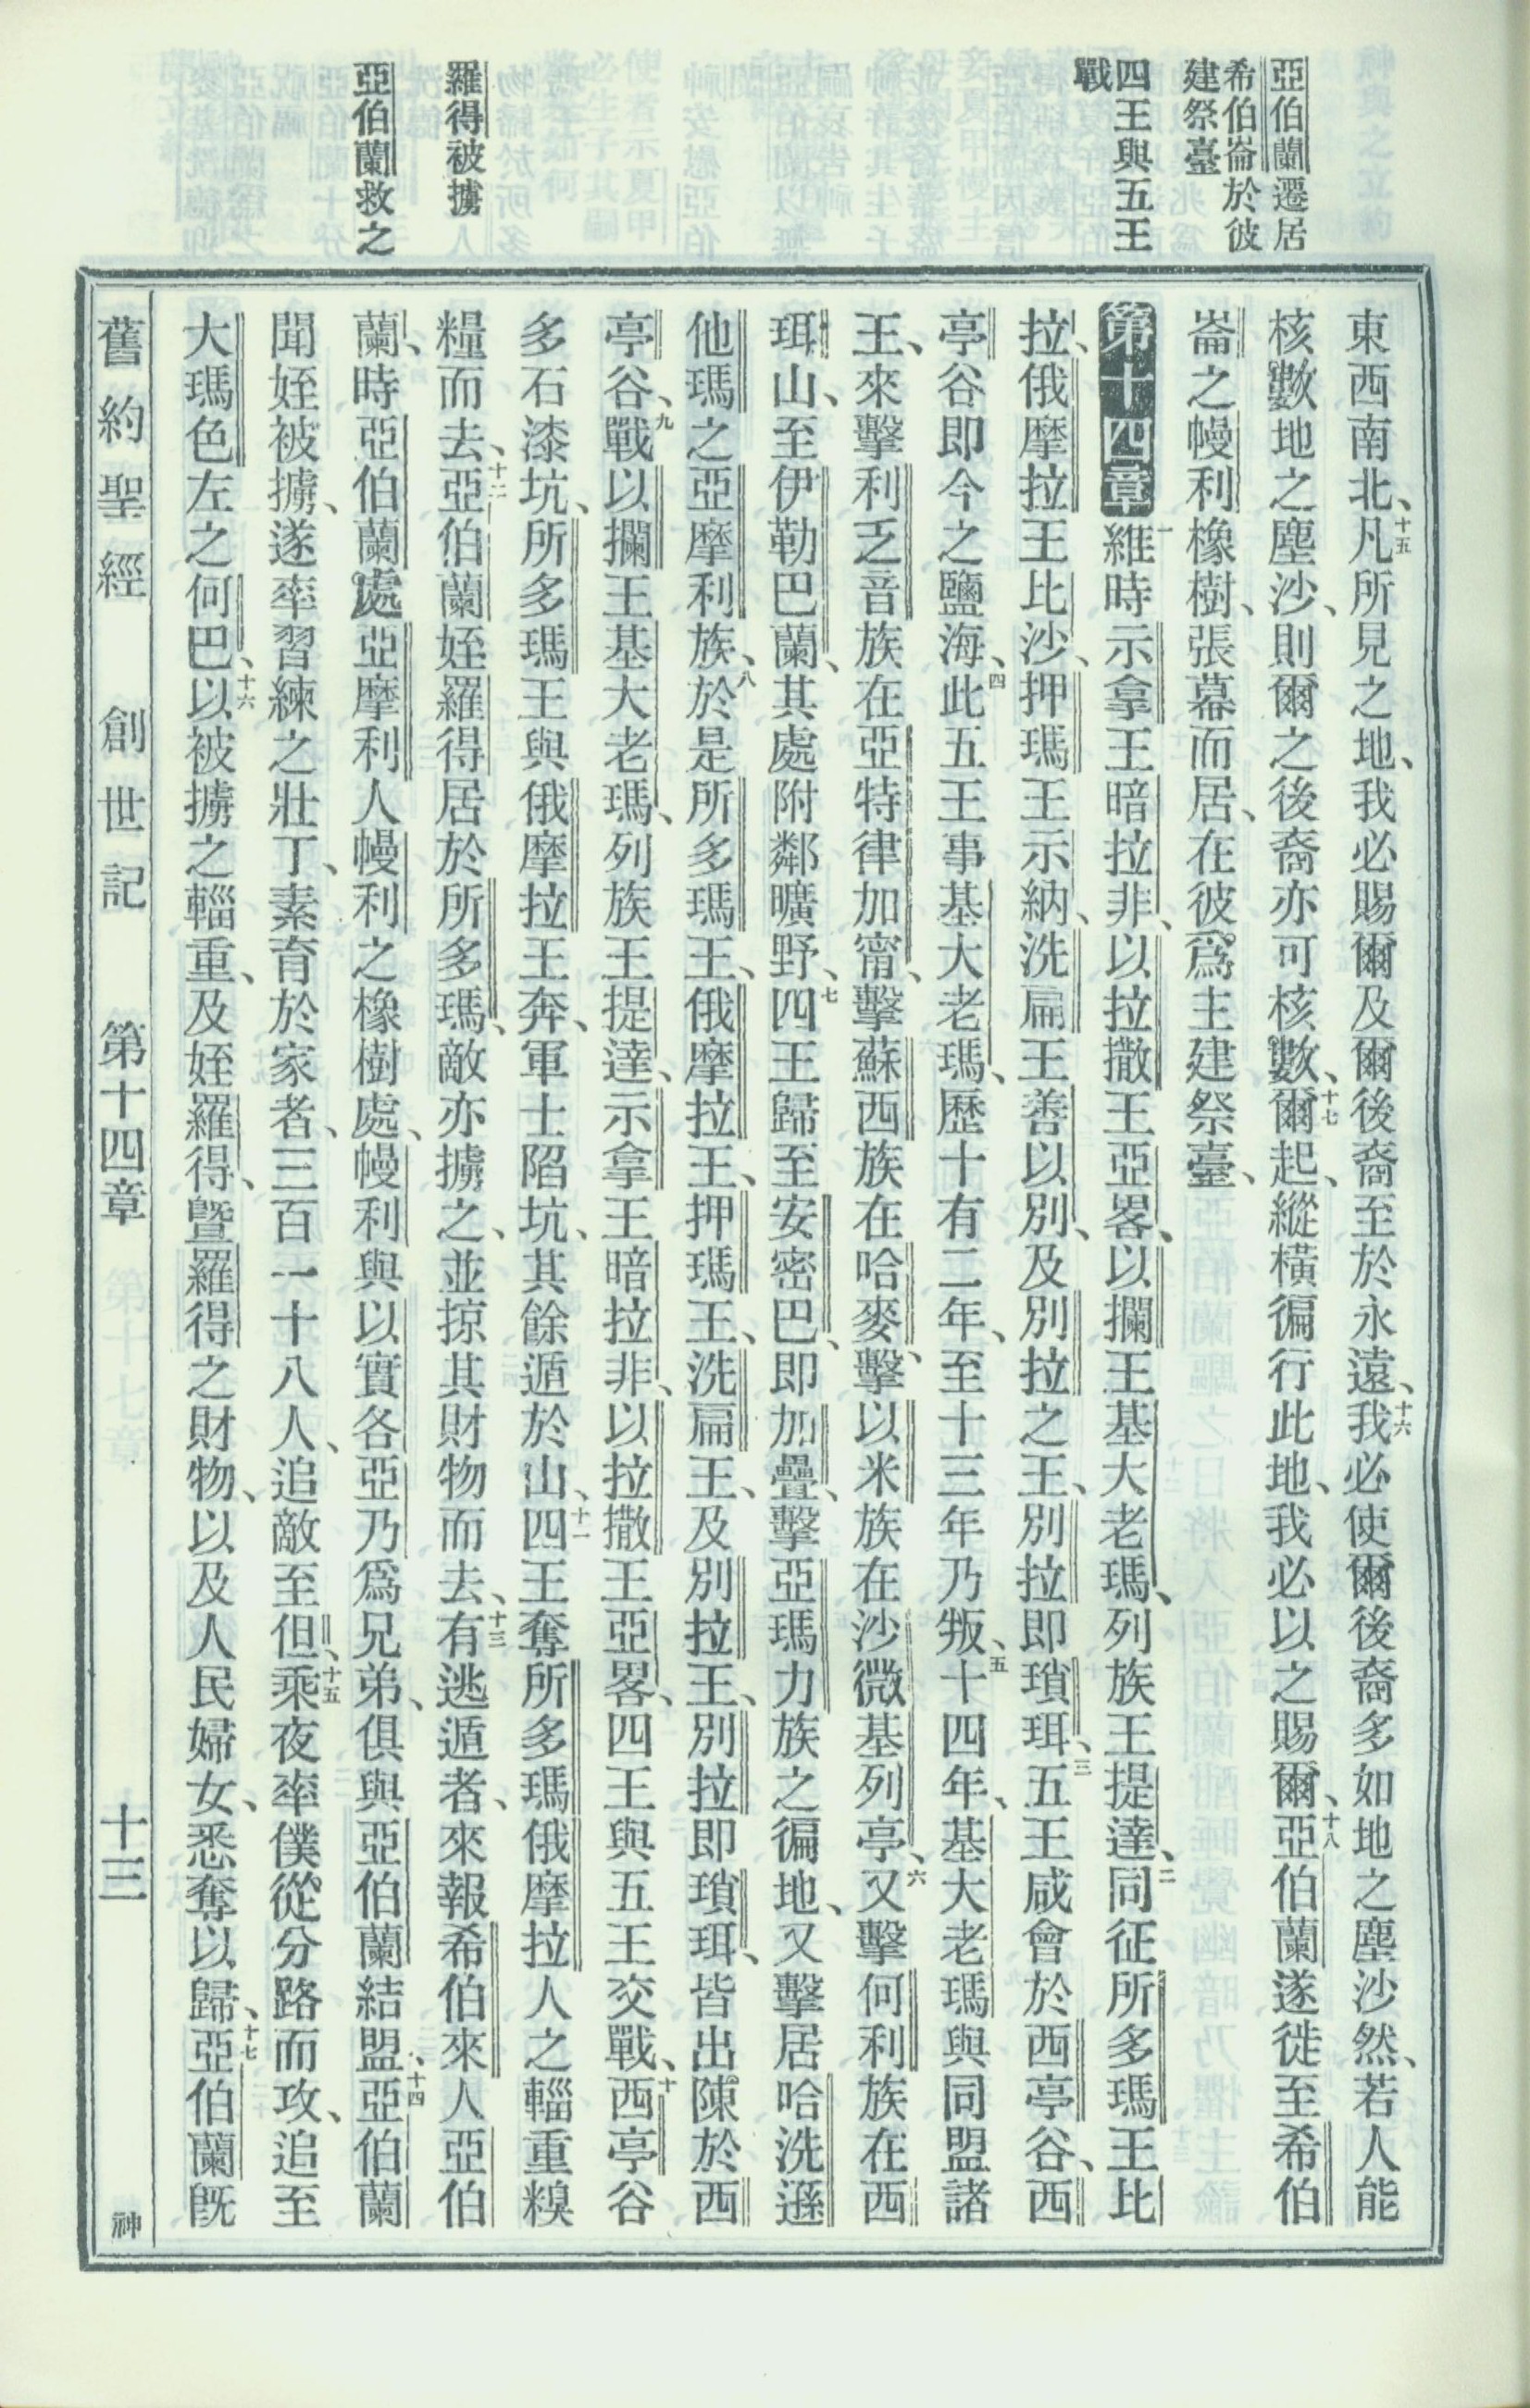 亞伯蘭遷居
希伯崙於彼
建祭臺
四王與五王
戰
羅得被擄
亞伯蘭救之
東西南北、十五凡所見之地、我必賜爾及爾後裔至於永遠、十六我必使爾後裔多如地之塵沙然、若人能
核數地之塵沙、則爾之後裔亦可核數、十七爾起、縱橫徧行此地、我必以之賜爾、十八亞伯蘭遂徙至希伯
崙之幔利橡樹、張幕而居、在彼爲主建祭臺、
第十四章 一維時示拿王暗拉非、以拉撒王亞畧、以攔王基大老瑪、列族王提達、二同征所多瑪王比
拉、俄摩拉王比沙、押瑪王示納、洗扁王善以別、及別拉之王、別拉即瑣珥、三五王咸會於西亭谷、西
亭谷即今之鹽海、四此五王事基大老瑪、歷十有二年、至十三年乃叛、五十四年、基大老瑪與同盟諸
王、來擊利乏音族在亞特律加甯、擊蘇西族在哈麥、擊以米族在沙微基列亭、六又擊何利族在西
珥山、至伊勒巴蘭、其處附鄰曠野、七四王歸至安密巴、即加疊、擊亞瑪力族之徧地、又擊居哈洗遜
他瑪之亞摩利族、八於是所多瑪王、俄摩拉王、押瑪王、洗扁王、及別拉王、別拉即瑣珥、皆出陳於西
亭谷、九戰以攔王基大老瑪、列族王提達、示拿王暗拉非、以拉撒王亞畧、四王與五王交戰、十西亭谷
多石漆坑、所多瑪王與俄摩拉王奔、軍士陷坑、其餘遁於山、十一四王奪所多瑪俄摩拉人之輜重糗
糧而去、十二亞伯蘭姪羅得居於所多瑪、敵亦擄之、並掠其財物而去、十三有逃遁者、來報希伯來人亞伯
蘭、時亞伯蘭處亞摩利人幔利之橡樹處、幔利與以實各亞乃爲兄弟、俱與亞伯蘭結盟、十四亞伯蘭
聞姪被擄、遂率習練之壯丁、素育於家者、三百一十八人、追敵至但、十五乘夜率僕從分路而攻、追至
大瑪色左之何巴、十六以被擄之輜重、及姪羅得、曁羅得之財物、以及人民婦女、悉奪以歸、十七亞伯蘭旣
舊約聖經 創世記 第十四章 十三 神